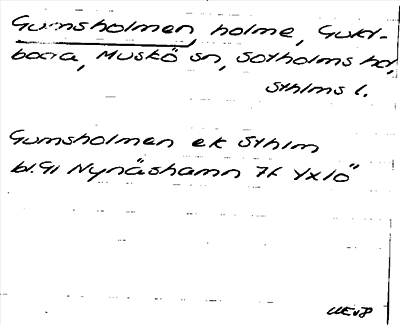 Gumsholmen, holme, Guld-
boda, Muskö sn, Sotholms hd,
Sthlms l.
Gumsholmen ek Sthlm
bl. 91 Nynäshamn 7f Yxlö